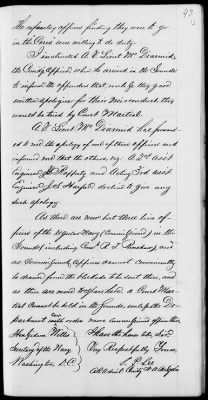 43
The refractory officers finding they were to go
in the were willing to do duty.
I instructed A.V. Lieut. McDiarmid,
the Comdg. Officer, when he arrived in the Sounds
to inform the offenders that, unless they gave
written apologies for their misconduct, they
would be tried by Court Martial.
A.V. Lieut. McDiarmid has forwar-
ded to me the apology of one of these officers and
informed me that the others, viz: A. 2nd Ass't
Engineer and Acting 3rd Ass't
Engineer decline to give any
such apology.
As there are now but three line of-
ficers of the regular Navy (Commissioned) in the
Sounds (including ) and
as Commissioned Officers cannot conveniently
be drawn from the blockade to be sent there, and
as there are none to spare here, a Court Mar-
tial cannot be held in the Sounds, unless the De-
partment will order more commissioned officers there.
Hon. Gideon Welles
Secretary of the Navy
Washington D.C.
I have the honor to be, Sir,
Very Respectfully Yours,
S. P. Lee